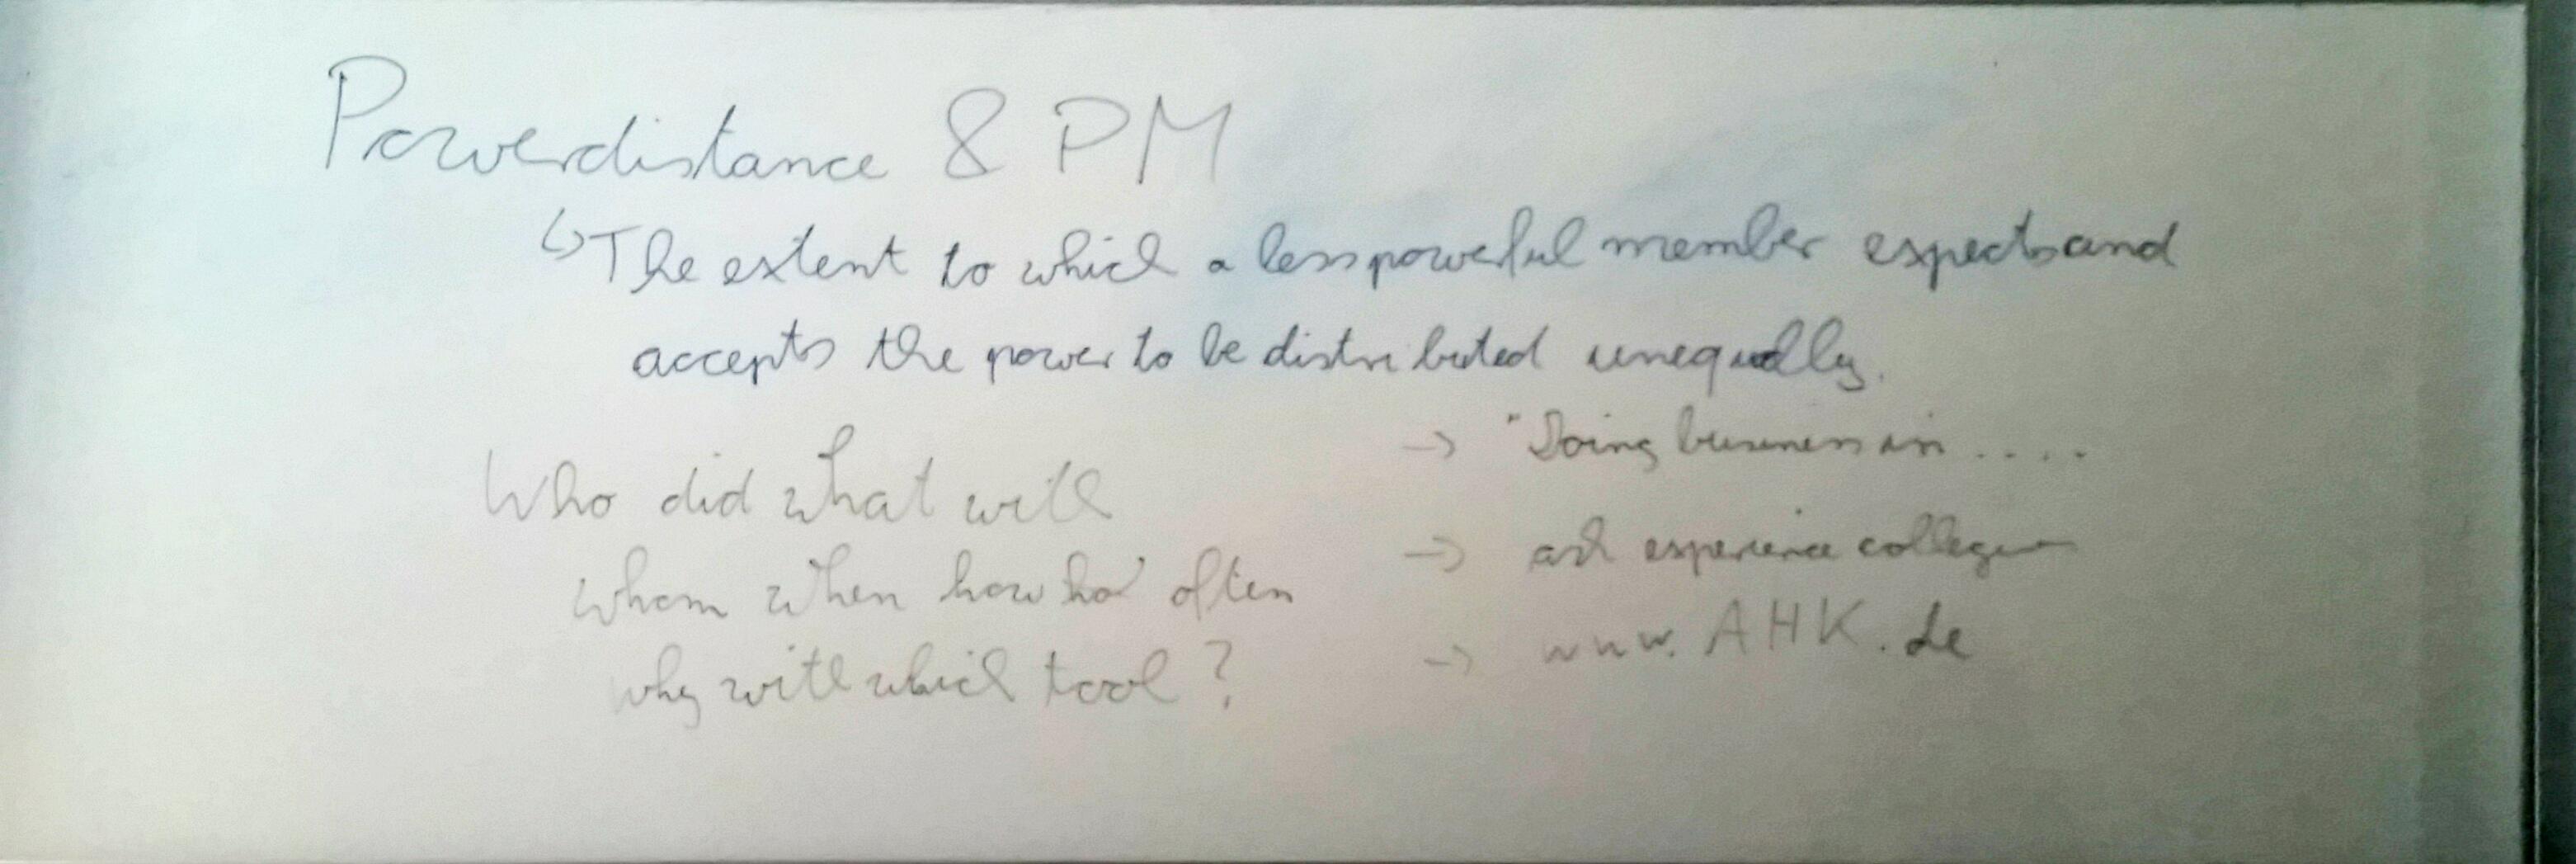 Powerdistance & PM
↳ The extent to which a less powerful member expects and
accepts the power to be distributed unequally.
Who did what with
whom when how how often
why with which tool?
→ "Doing business in ....
→ ask experience
→ www.AHK.de